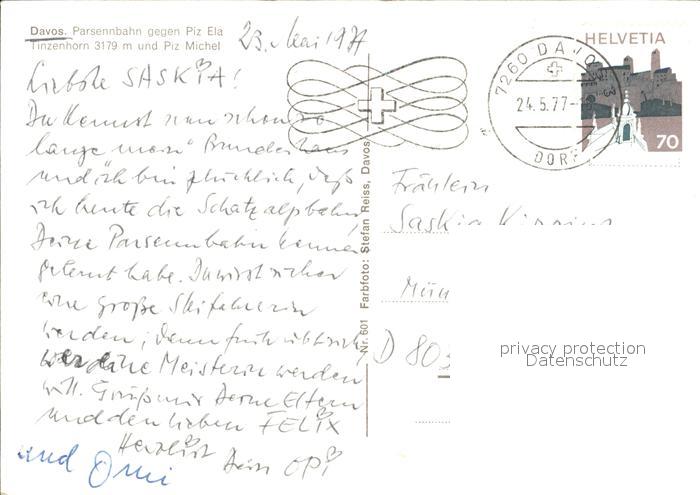 Davos. Parsennbahn gegen Piz Ela
Tinzenhorn 3179 m und Piz Michel
23. Mai 1977
Liebste SASKIA!
Du kennst nun schon so
lange mein
und ich bin glücklich, daß
ich heute die Schatzalpbahn,
Deine Parsennbahn kennen
gelernt habe. Du wirst sicher
eine große Skifahrerin
werden, denn früh übt sich,
wer eine Meisterin werden
will. Grüß mir Deine Eltern
und den lieben FELIX
Herzlichst Dein OPI
und Omi
Nr. 601 Farbfoto: Stefan Reiss, Davos
7260 DAVOS
24.5.77
DORF
HELVETIA
70
Fräulein
Saskia
Mün
D 803
privacy protection
Datenschutz